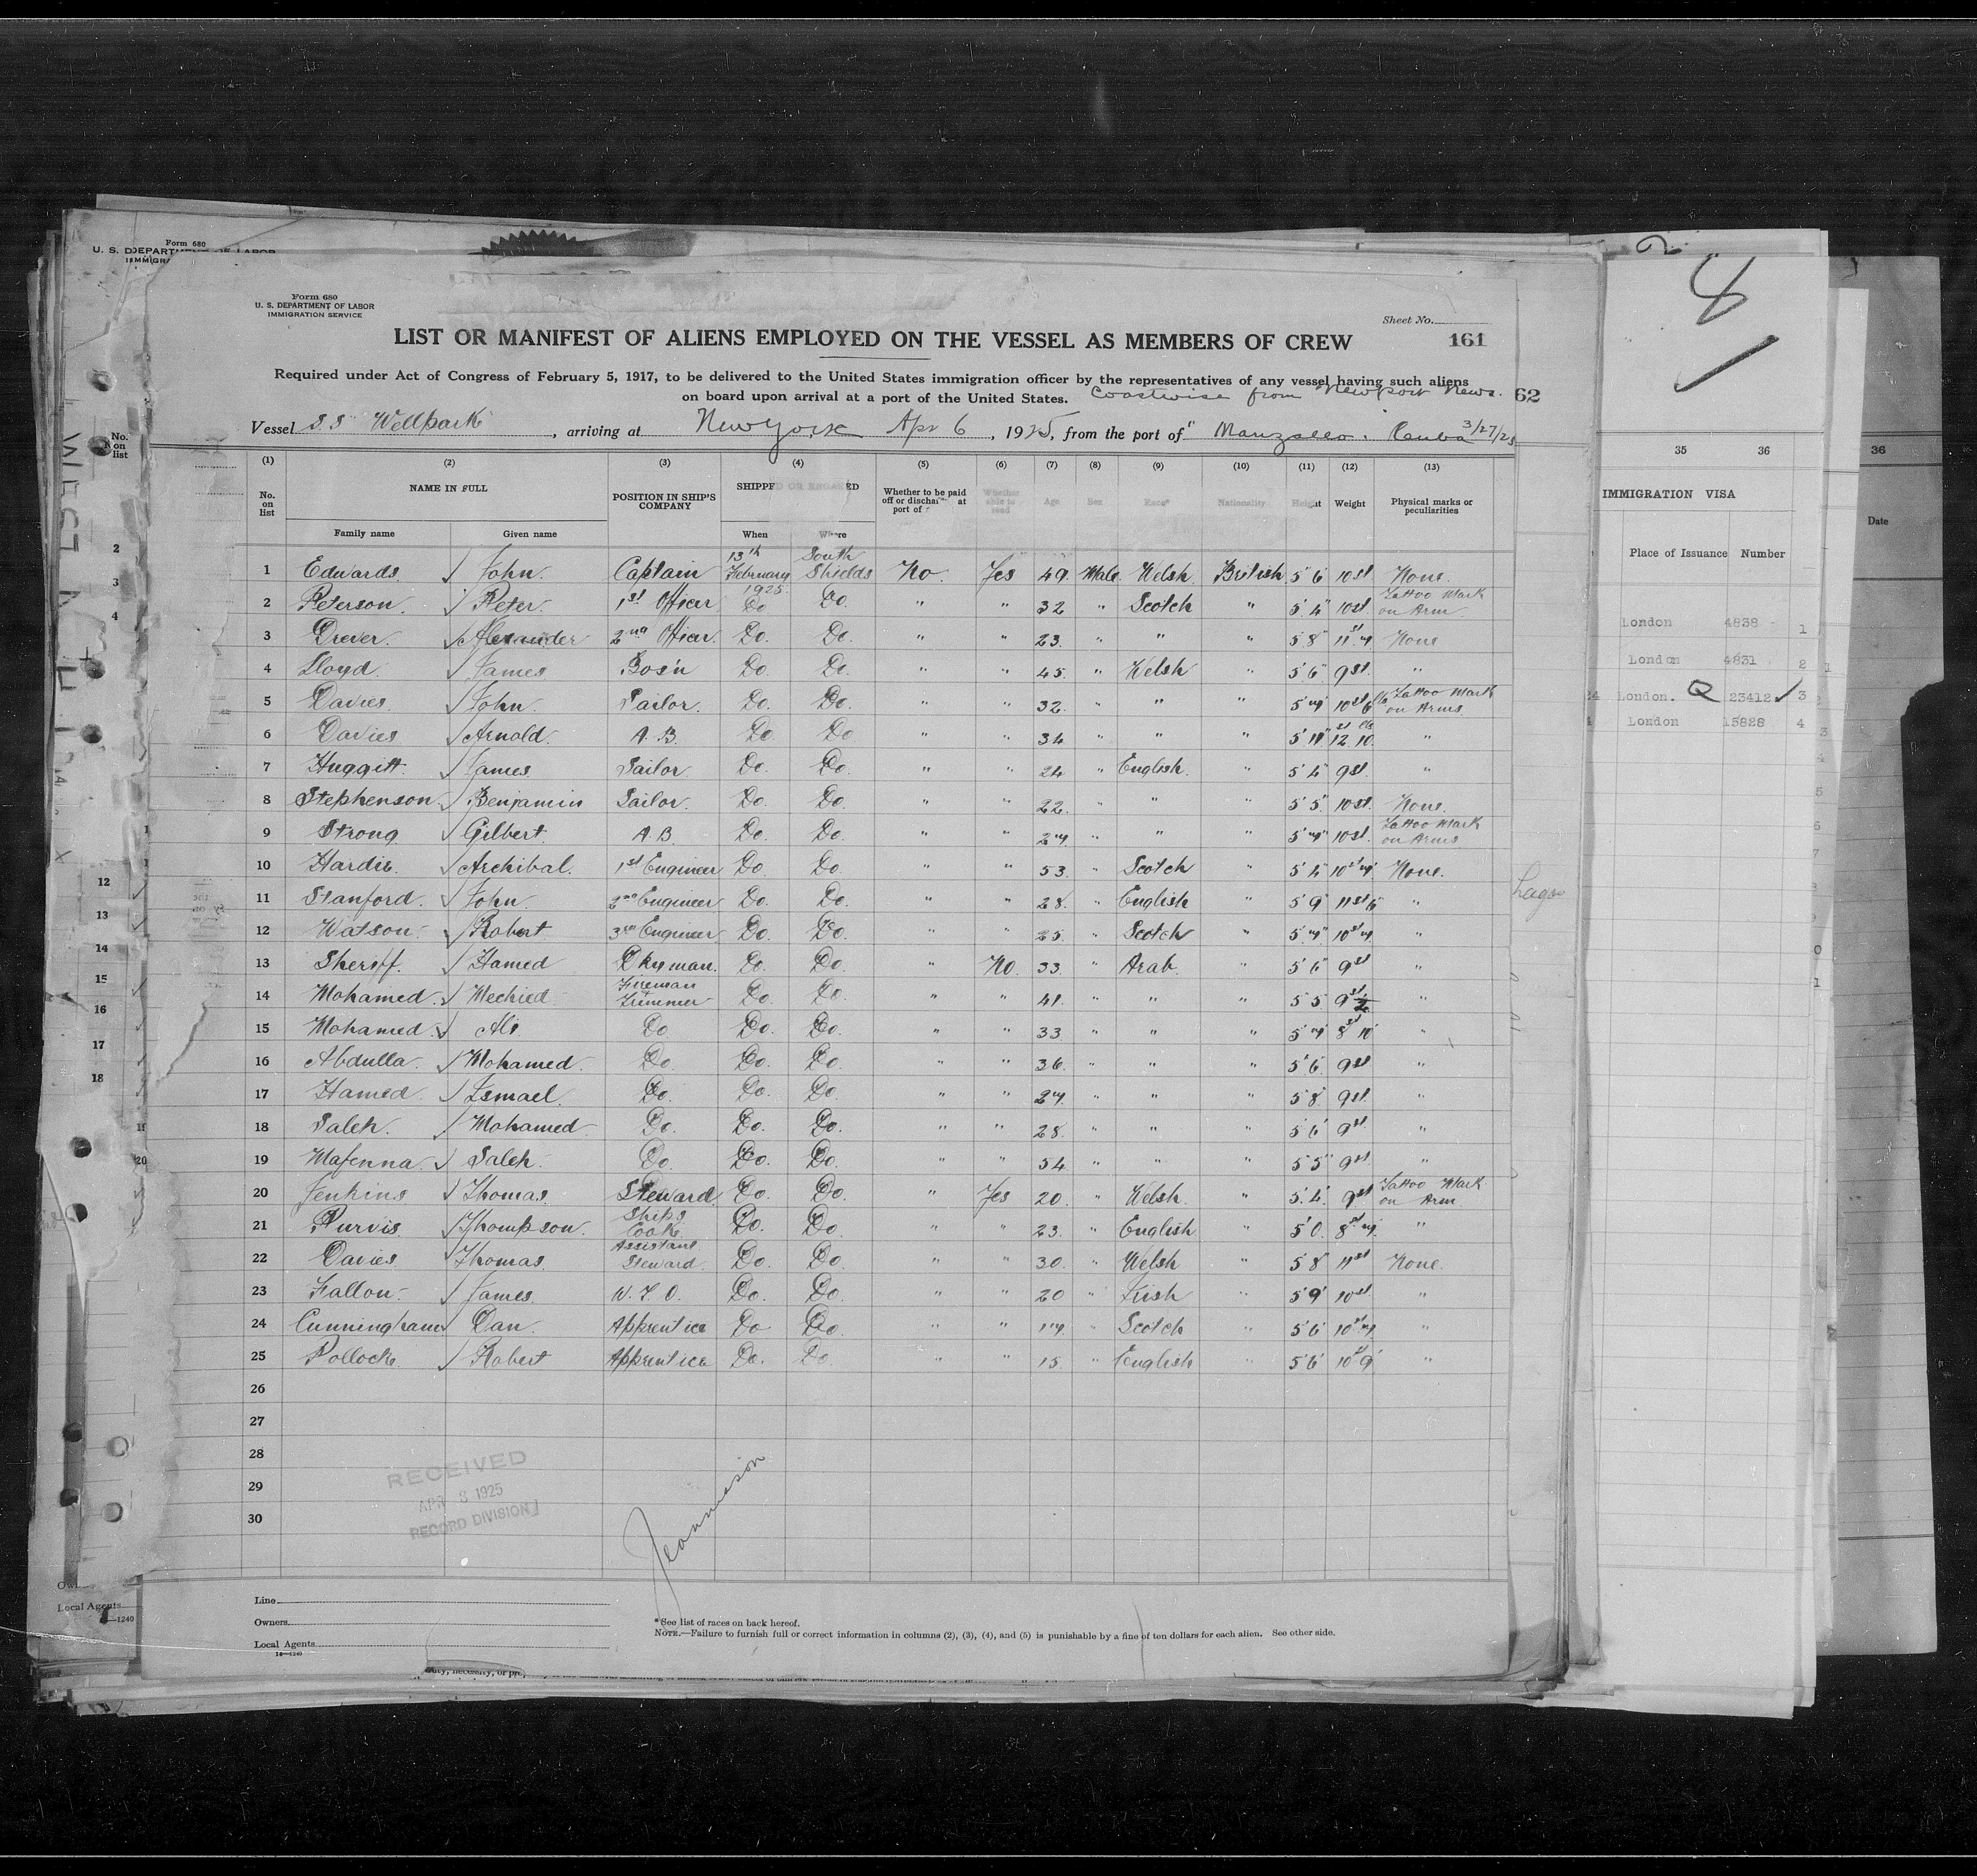 Form 680
U. S. DEPARTMENT OF LABOR
IMMIGRATION SERVICE
Sheet No.
161
LIST OR MANIFEST OF ALIENS EMPLOYED ON THE VESSEL AS MEMBERS OF CREW
Required under Act of Congress of February 5, 1917, to be delivered to the United States immigration officer by the representatives of any vessel having such aliens
on board upon arrival at a port of the United States. Coastwise from Newport News. 62
Vessel SS Wellpark, arriving at New York Apr 6, 1925, from the port of 3/27/25
(1) (2) (3) (4) (5) (6) (7) (8) (9) (10) (11) (12) (13)
No. on list NAME IN FULL POSITION IN SHIP'S COMPANY SHIPPED OR ENGAGED Whether to be paid off or discharged at port of Whether able to read Age Sex Race* Nationality Height Weight Physical marks or peculiarities
Family name Given name When Where
1 Edwards. John. Captain 13th February 1925. South Shields No. Yes 49. Male. Welsh. British 5'6" 10st. None.
2 Peterson. Peter. 1st Officer Do Do. " " 32 " Scotch " 5'4" 10st Tattoo Mark on Arm
3 Drever. Alexander 2nd Officer. Do. Do. " " 23. " " " 5'8" 11st 7 None
4 Lloyd. James Bos'n Do. Do. " " 45. " Welsh " 5'6" 9st. "
5 Davies. John. Sailor. Do. Do. " " 32. " " " 5'7" 10st 6lb Tattoo Mark on Arms.
6 Davies Arnold. A.B. Do Do " " 34 " " " 5'11" 12st 10lb "
7 Huggett. James. Sailor. Do. Do. " " 24 " English. " 5'4" 9st. "
8 Stephenson Benjamin Sailor. Do. Do. " " 22. " " " 5'5" 10st. None.
9 Strong Gilbert. A.B. Do. Do. " " 27. " " " 5'7" 10st. Tattoo Mark on Arms
10 Hardie. Archibal. 1st Engineer Do. Do. " " 53. " Scotch " 5'4" 10st 7 None.
11 Stanford. John. 2nd Engineer Do. Do. " " 28. " English " 5'9" 11st 6 "
12 Watson. Robert 3rd Engineer Do. Do. " " 25. " Scotch " 5'7" 10st 7 "
13 Sheriff. Hamed Dkyman. Do. Do. " No. 33. " Arab. " 5'6" 9st "
14 Mohamed. Mechied Fireman + Trimmer Do. Do. " " 41. " " " 5'5" 9st "
15 Mohamed. Ali. Do Do. Do. " " 33. " " " 5'7" 8st 11 "
16 Abdulla. Mohamed. Do. Do. Do. " " 36. " " " 5'6" 9st "
17 Hamed. Ismael. Do. Do. Do. " " 27. " " " 5'8" 9st. "
18 Saleh. Mohamed. Do. Do. Do. " " 28. " " " 5'6" 9st "
19 Mafenna. Saleh. Do. Do. Do. " " 54 " " " 5'5" 9st "
20 Jenkins Thomas Steward Do. Do. " Yes 20. " Welsh. " 5'4" 9st Tattoo Mark on Arm
21 Purvis. Thompson. Ships Cook Do. Do. " " 23. " English " 5'0" 8st 7 "
22 Davies Thomas. Assistant Steward. Do. Do. " " 30. " Welsh " 5'8" 11st None.
23 Fallon. James. W.T.O. Do. Do. " " 20 " Irish " 5'9" 10st. "
24 Cunningham Dan. Apprentice Do Do. " " 17. " Scotch " 5'6" 10st 7 "
25 Pollock. Robert Apprentice Do. Do. " " 15. " English " 5'6" 10st 9 "
26
27
28
29
30
RECEIVED
APR 8 1925
RECORD DIVISION
Jeannieson
Line
Owners
Local Agents
16—1240
*See list of races on back hereof.
NOTE.—Failure to furnish full or correct information in columns (2), (3), (4), and (5) is punishable by a fine of ten dollars for each alien. See other side.
Form 680
No. on list
2
3
4
12
13
14
15
16
17
18
20
Local Agents
—1240
8
35 36
IMMIGRATION VISA
Place of Issuance Number
London 4838 1
London 4831 2
London. 23412 3
London 15828 4
36
Date